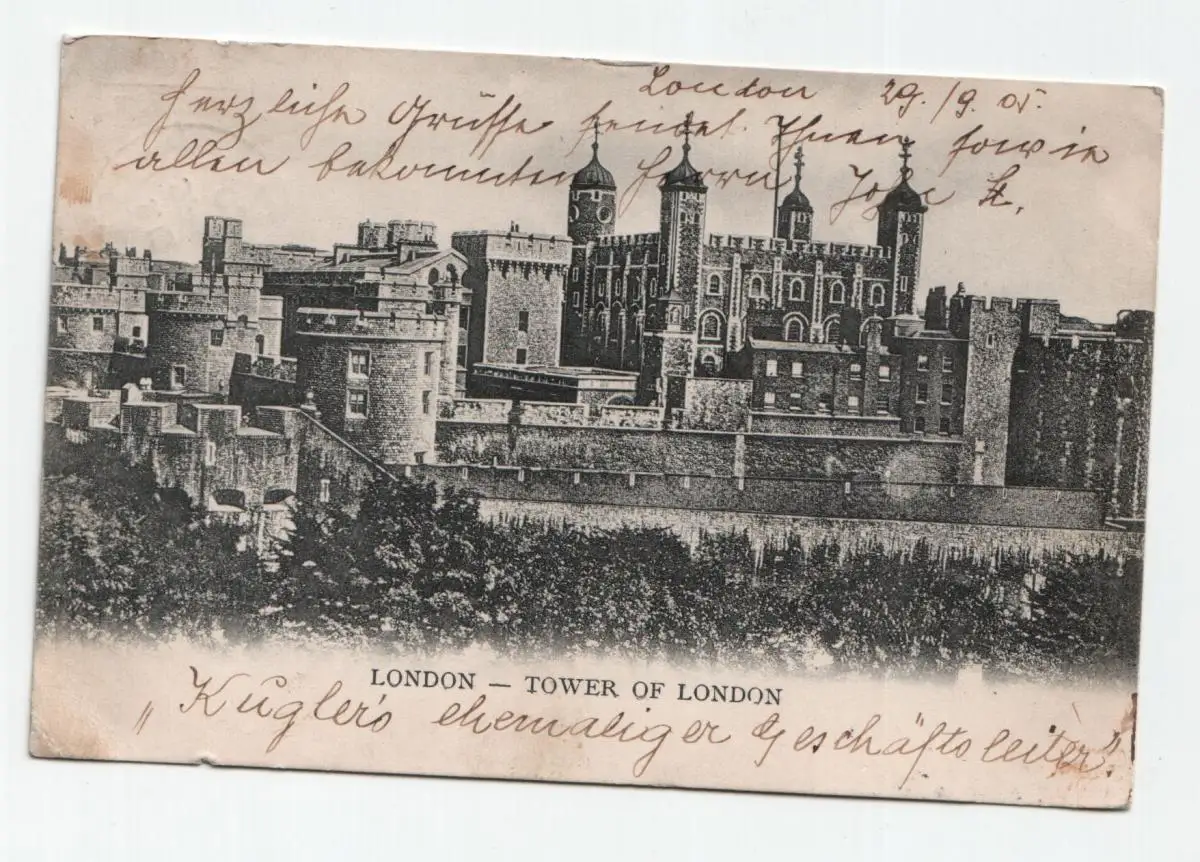 London 29./9. 05.
Herzliche Grüsse sendet Ihnen sowie
allen bekannten Herrn John
LONDON — TOWER OF LONDON
„Kugler's ehemaliger Geschäftsleiter".